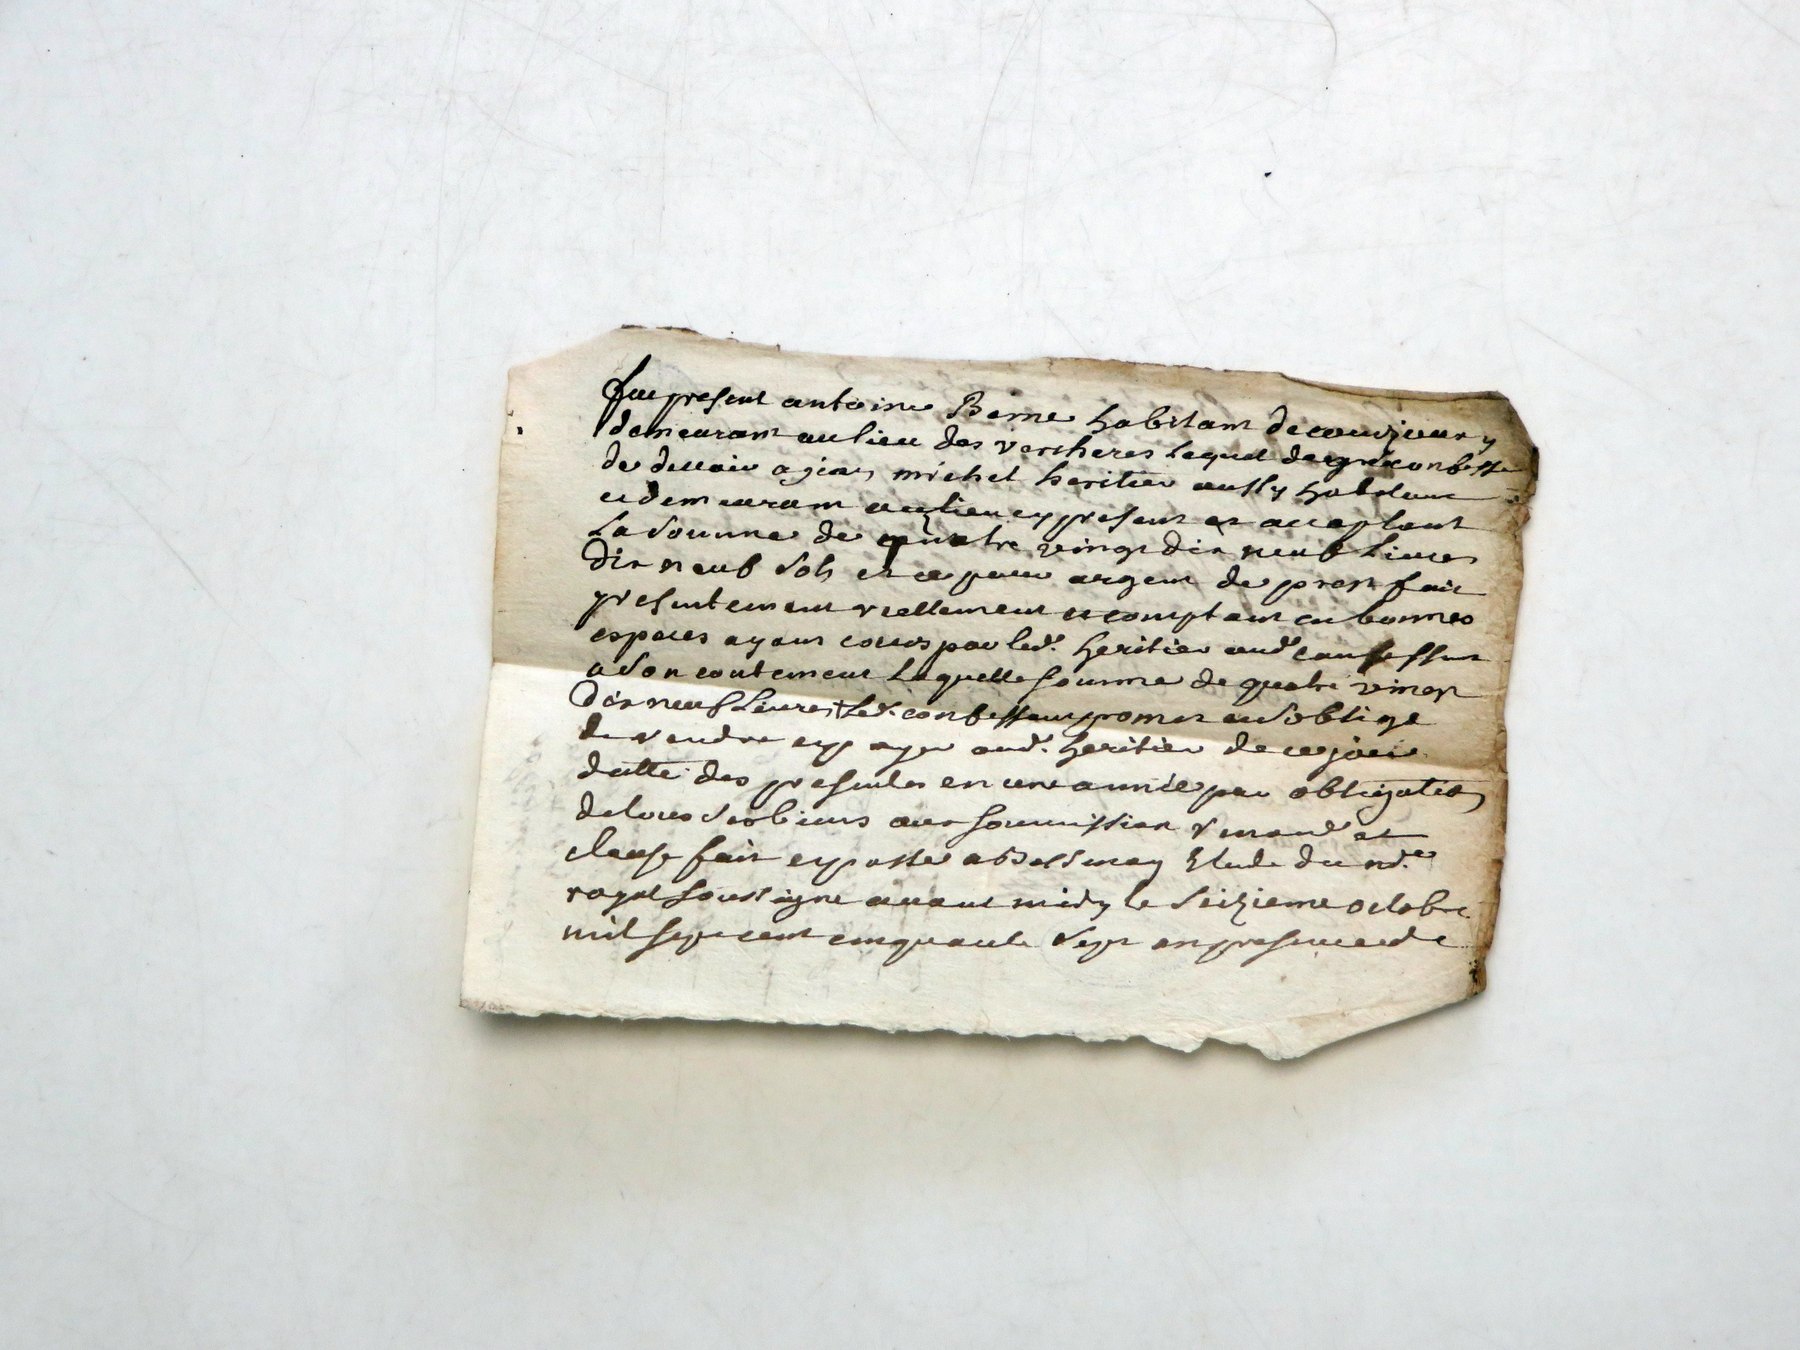 fut present antoine Berne habitant de
demeurant au lieu des vercheres Lequel de gré confesse
de devoir a jean michel heritier aussy habitant
et demeurant au lieu present et aceptant
La Somme de quatre vingt dix neuf Livres
Dix neuf Sols et ce pour argent de prest fait
presentement reellement et comptant en bonnes
especes ayant cours par led. heritier aud. confessant
a Son contentement Laquelle somme de quatre vingt
Dix neuf Livres + Led. confessant promet et S'oblige
de rendre et payer aud. heritier de ce jour
datte des presentes en une année par obligation
de tous Ses biens aux soumission et
clause fait et passé a Etude du no.re
royal soussigne avant midy le Seizieme octobre
mil sept cent cinquante Sept en presence de